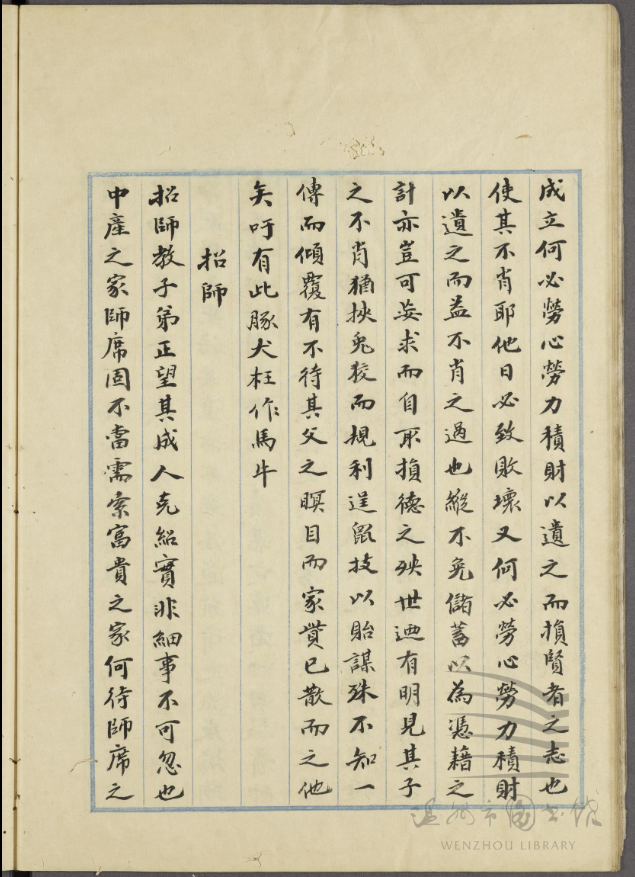 成立何必勞心勞力積財以遺之而損賢者之志也
使其不肖耶他日必致敗壞又何必勞心勞力積財
以遺之而益不肖之過也縱不免儲蓄以為憑藉之
計亦豈可妄求而自取損德之殃世迺有明見其子
之不肖猶挾兔狡而規利逞鼠技以貽謀殊不知一
傳而傾覆有不待其父之瞑目而家貲已散而之他
矣吁有此豚犬枉作馬牛
招師
招師教子弟正望其成人克紹實非細事不可忽也
中產之家師席固不當需索富貴之家何待師席之
溫州市圖書館
WENZHOU LIBRARY